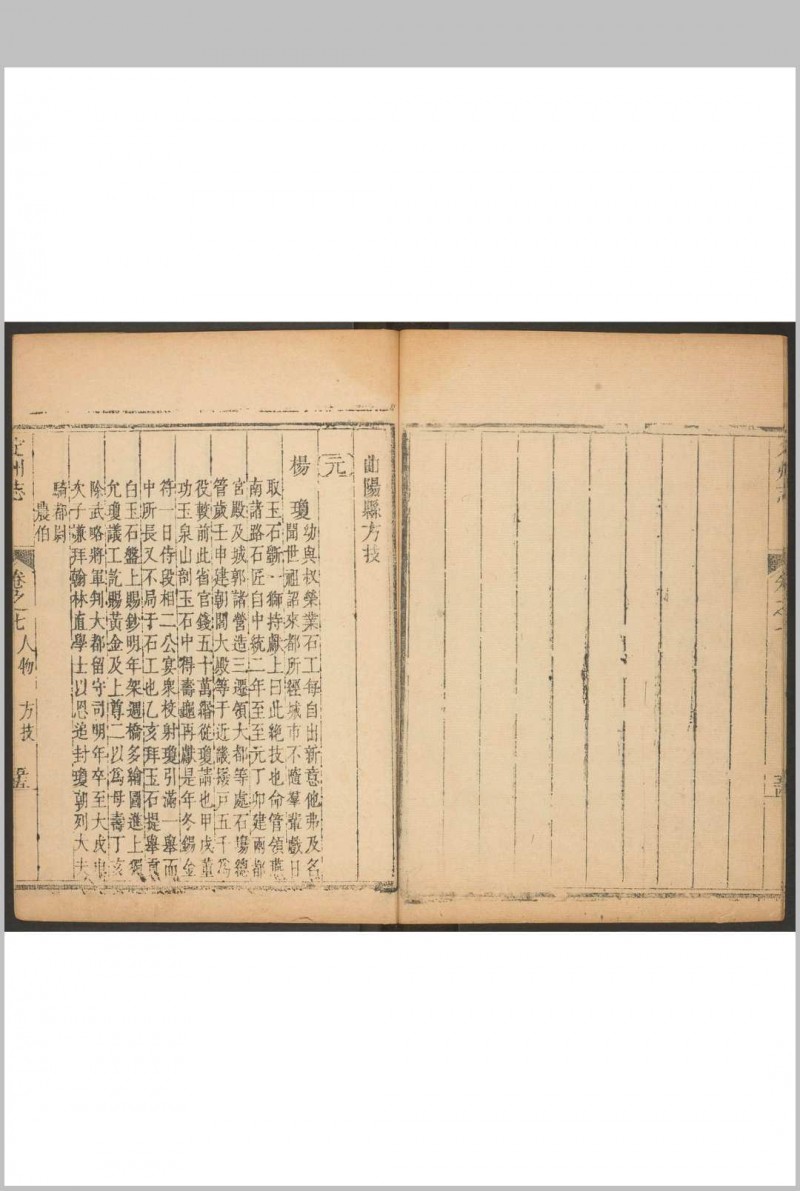 曲陽縣方技
元
楊瓊
幼與叔榮業石工每自出新意他弗及名
聞世祖詔來都所經城市不隨羣輩戲日
取玉石斵一獅持獻上曰此絕技也命管領燕
南諸路石匠自中統二年至至元丁卯建兩都
宮殿及城郭諸營造三遷領大都等處石
管歲壬申建朝閣大殿等于近議撥戶五千爲
役較前此省官錢五十萬緡從瓊議也甲戌董
功玉泉山剖玉石中得壽龜再獻是年冬錫金
符一日侍段相二公宴衆校射瓊引滿一舉而
中所長又不局于石工也乙亥拜玉石提舉
白玉石盤上賜鈔明年架週橋多繪圖進上獨
允瓊議工訖賜黃金及上尊二以爲母壽丁亥
除武略將軍判大都留守司明年卒至大戊申
次子謙拜翰林直學士以恩追封瓊朝列大夫
騎都尉
農伯
定州志
卷之七人物 方技